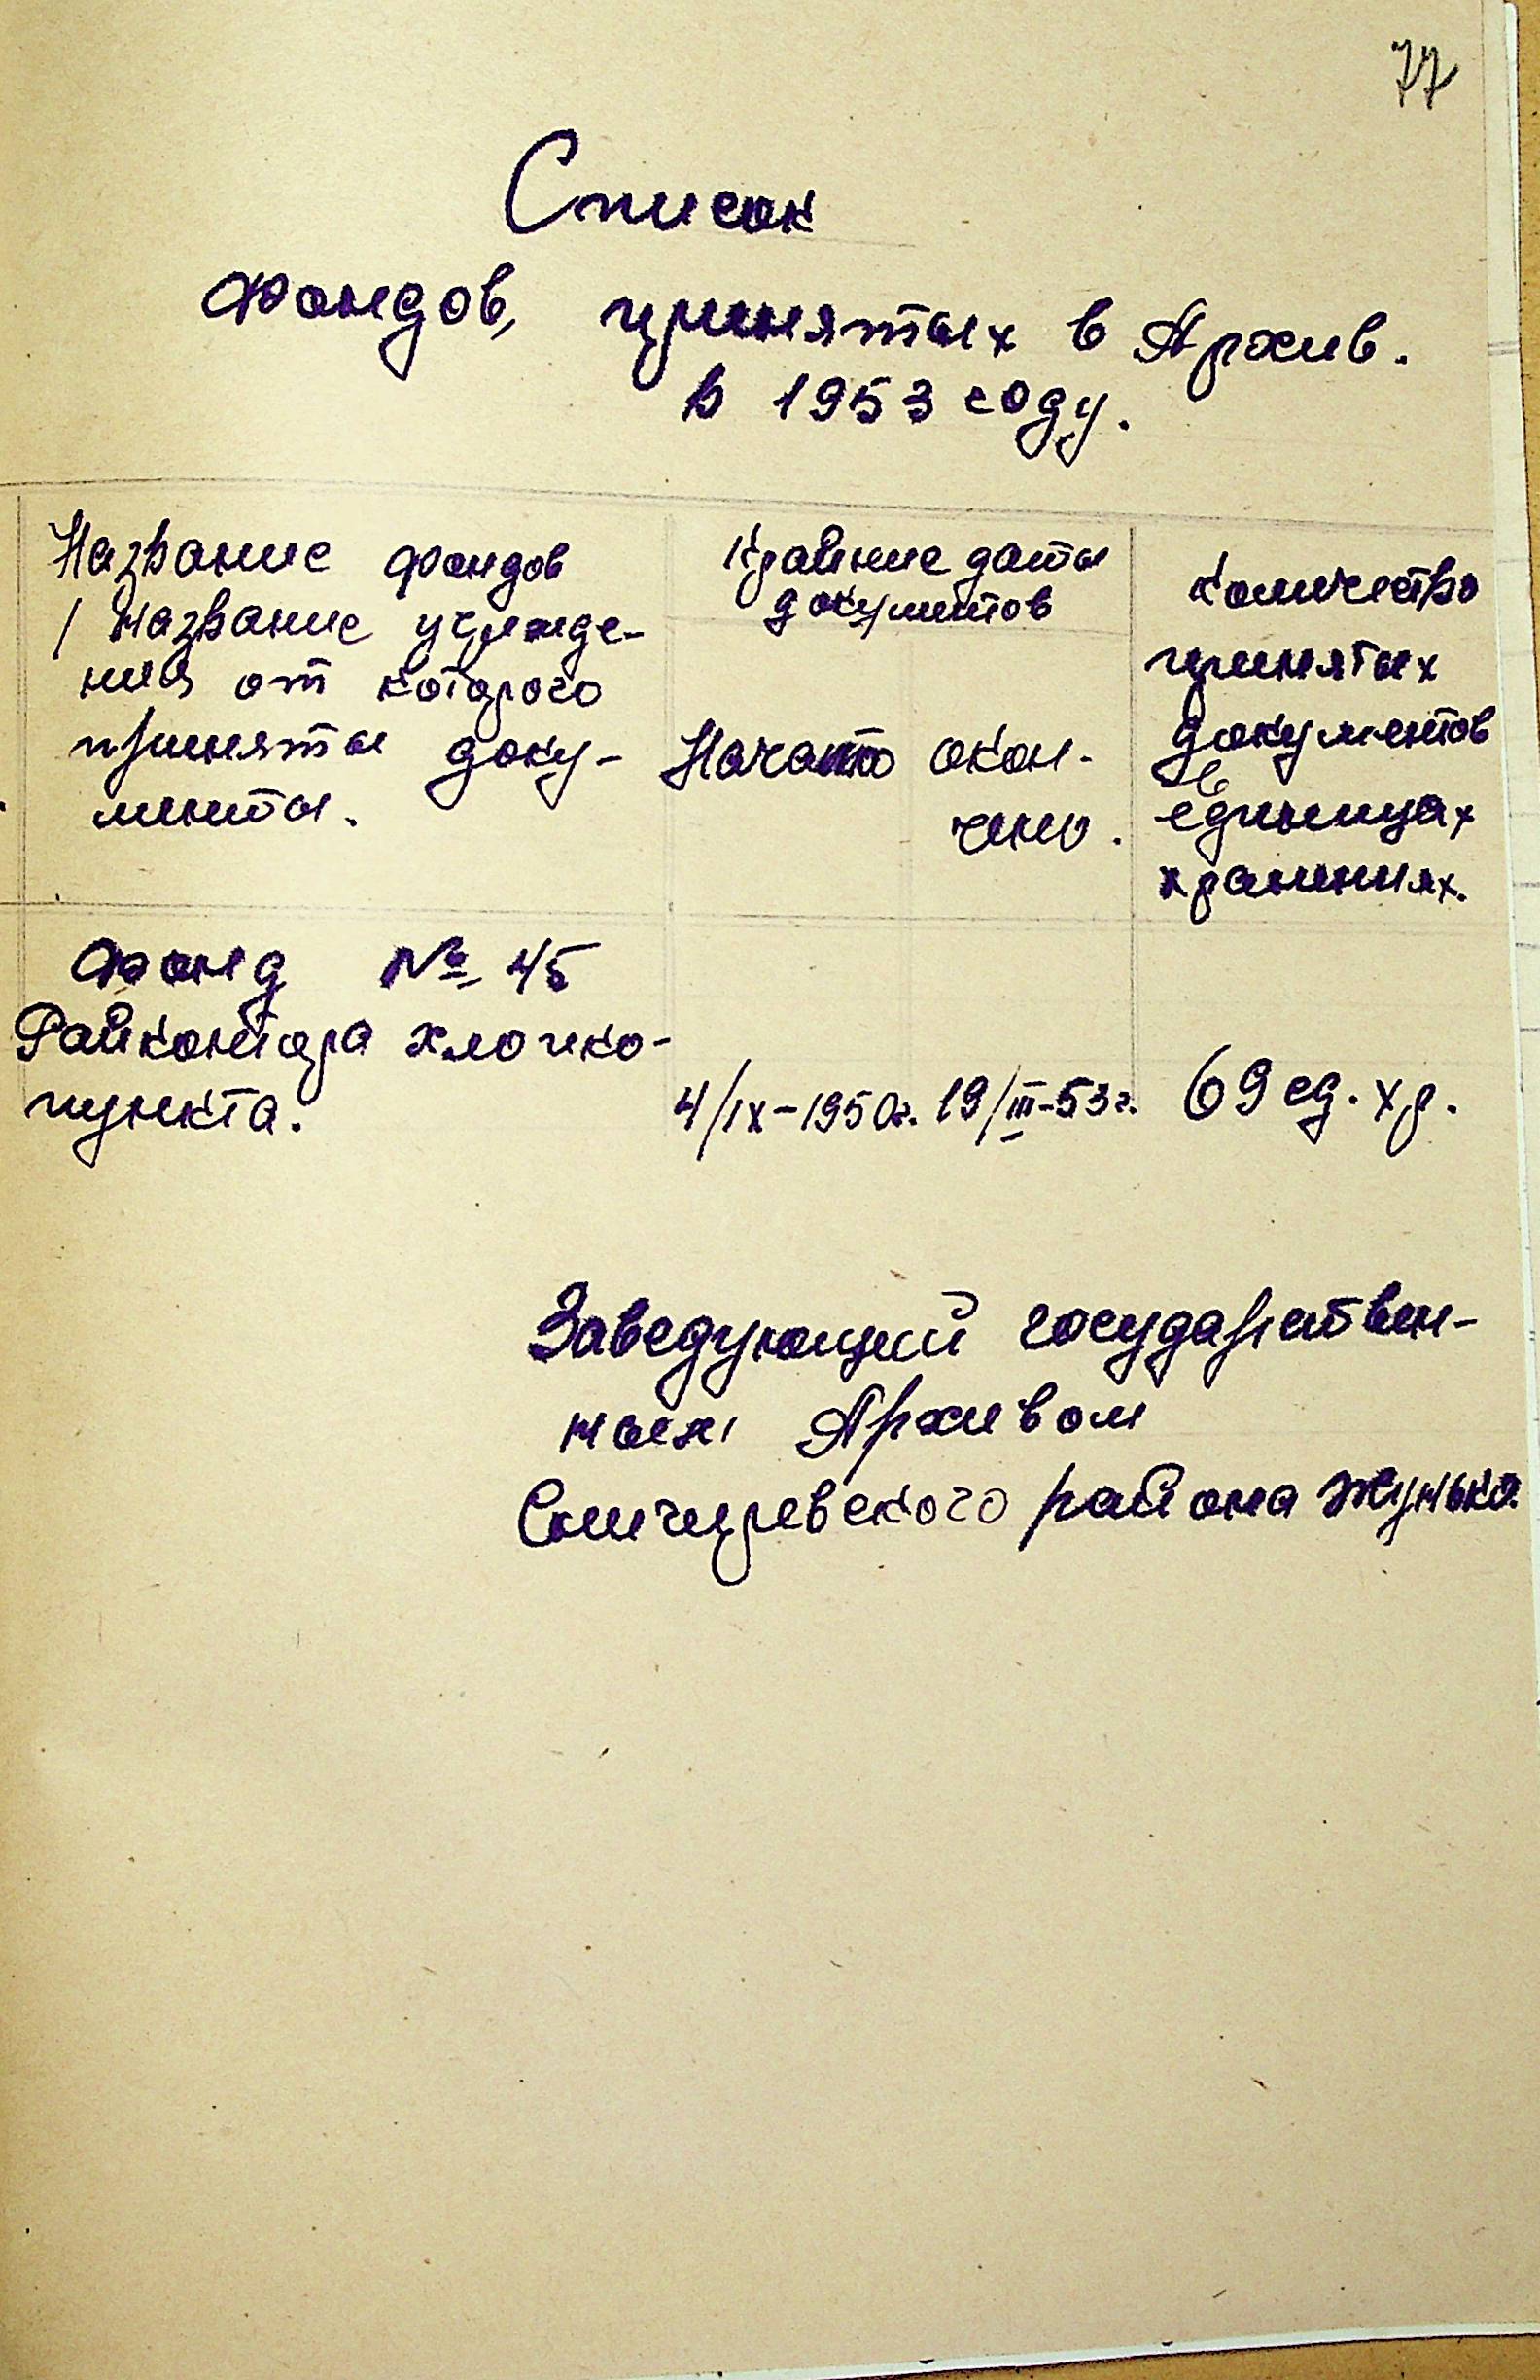 77
Список
фондов, принятых в Архив.
в 1953 году.
Название фондов
/ Название учрежде-
ния от которого
приняты доку-
менты.
Крайние даты
документов
Начато окон-
чено.
Количество
принятых
документов
в
единицах
хранениях.
Фонд № 45
Райконтора хлопко-
пункта.
4/IX-1950г. 19/III-53г. 69 ед. хр.
Заведующий государствен-
ным Архивом
Снигиревского района Жунько